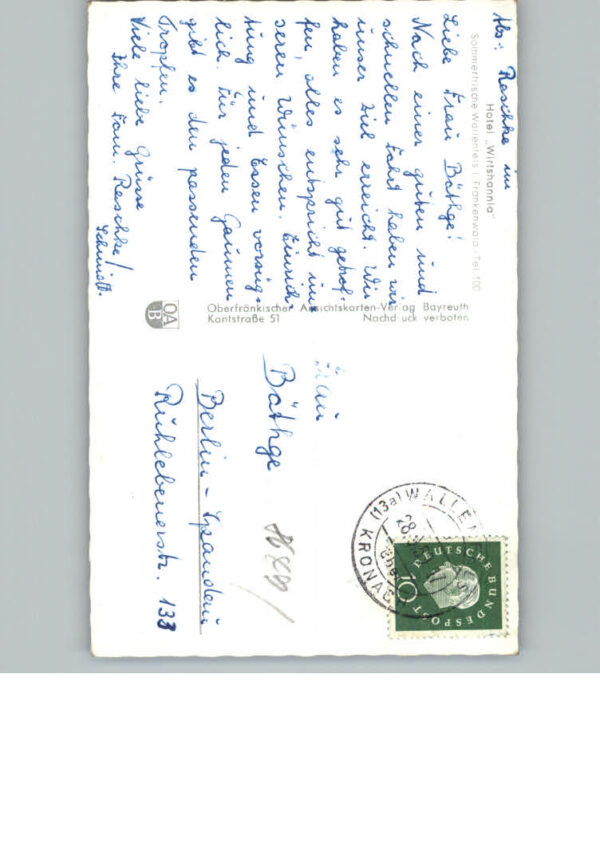 Abs.: Reschke im
Hotel „Wirtshannla"
Sommerfrische Wallenfels i. Frankenwald · Tel. 100
Liebe Frau Bäthge!
Nach einer guten und
schnellen Fahrt haben wir
unser Ziel erreicht. Wir
haben es sehr gut getrof-
fen, alles entspricht un-
seren Wünschen. Einrich-
tung und Essen vorzüg-
lich. Für jeden Gaumen
gibt es den passenden
Tropfen.
Viele liebe Grüsse
Ihre Fam. Reschke/
Schmidt.
OA
B
Oberfränkischer Ansichtskarten-Verlag Bayreuth
Kantstraße 51 Nachdruck verboten
Frau
Bäthge
Berlin-Spandau
Ruhlebenerstr. 133
(13a) WALLEN
KRONAC
28
DEUTSCHE BUNDESPOST
10